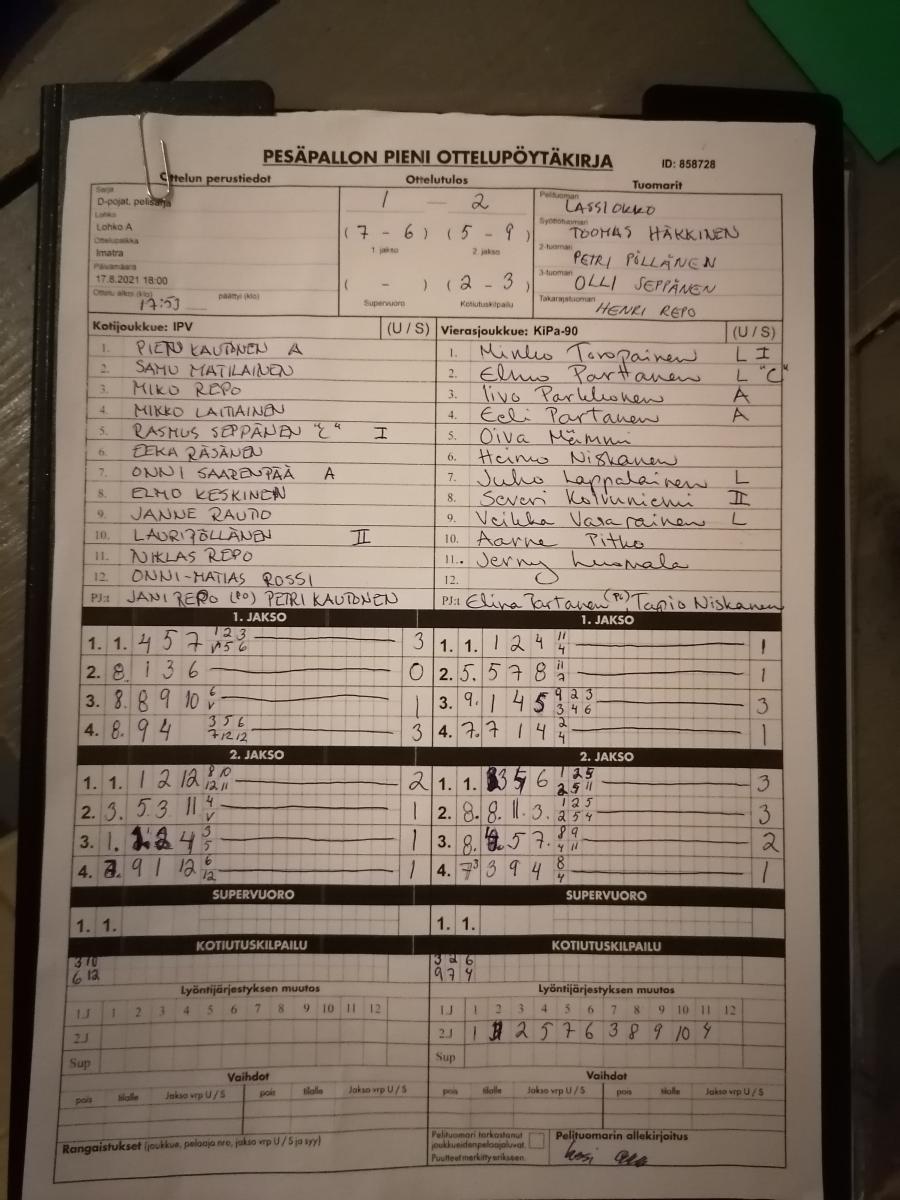 PESÄPALLON PIENI OTTELUPÖYTÄKIRJA ID: 858728
Ottelun perustiedot Ottelutulos Tuomarit
Sarja
D-pojat, pelisarja
Lohko
Lohko A
Ottelupaikka
Imatra
Päivämäärä
17.8.2021 18:00
Ottelu alkoi (klo) 17:53 päättyi (klo)
1 — 2
(7 - 6) (5 - 9)
1. jakso 2. jakso
( - ) (2 - 3)
Supervuoro Kotiutuskilpailu
Pelituomari LASSI OKKO
Syöttötuomari TOOMAS HÄKKINEN
2-tuomari PETRI PÖLLÄNEN
3-tuomari OLLI SEPPÄNEN
Takarajatuomari HENRI REPO
Kotijoukkue: IPV (U / S)
1. PIETU KAUTONEN A
2. SAMU MATILAINEN
3. MIKO REPO
4. MIKKO LAITIAINEN
5. RASMUS SEPPÄNEN "C" I
6. EEKA RÄSÄNEN
7. ONNI SAARENPÄÄ A
8. ELMO KESKINEN
9. JANNE RAUTIO
10. LAURI PÖLLÄNEN II
11. NIKLAS REPO
12. ONNI-MATIAS ROSSI
PJ:t JANI REPO (PO) PETRI KAUTONEN
Vierasjoukkue: KiPa-90 (U / S)
1. Minko Toropainen L I
2. Elmo Parttanen L "C"
3. Iivo Parkkonen A
4. Eeli Partanen A
5. Oiva Mämmi
6. Heimo Niskanen
7. Juho Lappalainen L
8. Severi Koivuniemi II
9. Veikka Vasarainen L
10. Aarne Pitko
11. Jerny Luomala
12.
PJ:t Elina Partanen (PO), Tapio Niskanen
1. JAKSO
1. 1. 4 5 7 1 2 3 3
V 5 6
2. 8. 1 3 6 0
3. 8. 8 9 10 6 1
V
4. 8. 9 4 3 5 6 3
7 12 12
1. JAKSO
1. 1. 1 2 4 11 1
4
2. 5. 5 7 8 11 1
7
3. 9. 1 4 5 9 2 3 3
3 4 6
4. 7. 7 1 4 2 1
4
2. JAKSO
1. 1. 1 2 12 8 10 2
12 11
2. 3. 5 3 11 4 1
V
3. 1. 2 4 3 1
5
4. 9 1 12 6 1
12
2. JAKSO
1. 1. 3 5 6 1 2 5 3
2 5 11
2. 8. 8. 11. 3. 1 2 5 3
2 5 4
3. 8. 5 7. 8 9 2
4 11
4. 7 3 3 9 4 8 1
4
SUPERVUORO
1. 1.
SUPERVUORO
1. 1.
KOTIUTUSKILPAILU
3 10
6 12
KOTIUTUSKILPAILU
3 2 6
9 7 4
Lyöntijärjestyksen muutos
1.J 1 2 3 4 5 6 7 8 9 10 11 12
2.J
Sup
Lyöntijärjestyksen muutos
1.J 1 2 3 4 5 6 7 8 9 10 11 12
2.J 1 11 2 5 7 6 3 8 9 10 4
Sup
Vaihdot
pois tilalle Jakso vrp U / S pois tilalle Jakso vrp U / S
Vaihdot
pois tilalle Jakso vrp U / S pois tilalle Jakso vrp U / S
Rangaistukset (joukkue, pelaaja nro, jakso vrp U / S ja syy)
Pelituomari tarkastanut
joukkueiden pelaajaluvat.
Puutteet merkitty erikseen.
Pelituomarin allekirjoitus